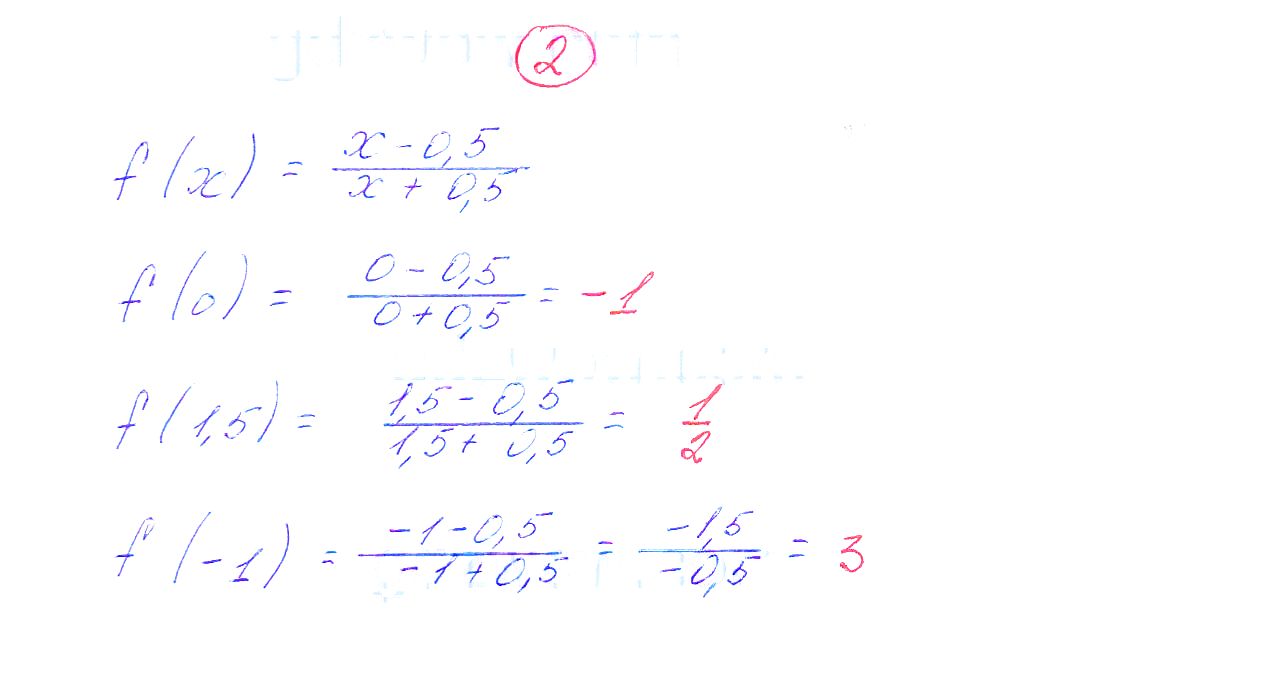 2
f(x) = x - 0,5 / x + 0,5
f(0) = 0 - 0,5 / 0 + 0,5 = -1
f(1,5) = 1,5 - 0,5 / 1,5 + 0,5 = 1/2
f(-1) = -1 - 0,5 / -1 + 0,5 = -1,5 / -0,5 = 3